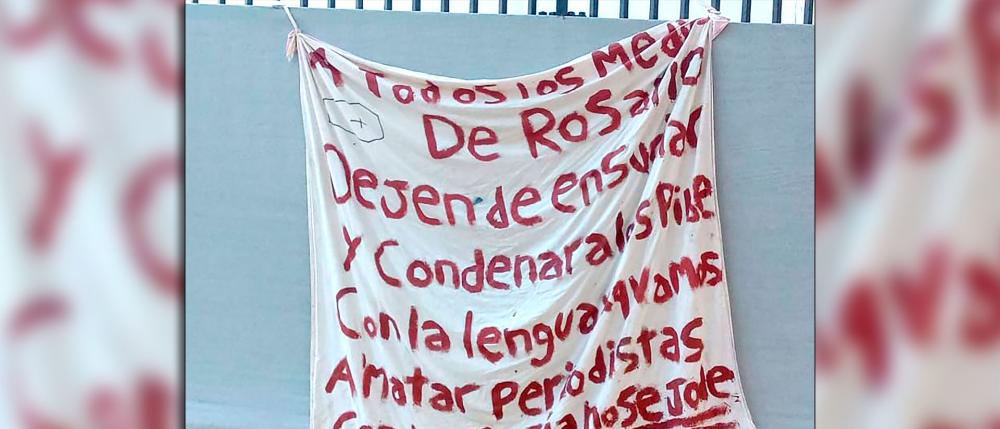 A Todos los Medi
De Rosario
Dejen de ensuciar
Y Condenar a los Pibe
Con la lengua xq vamos
A Matar Periodistas
Con la no se Jode